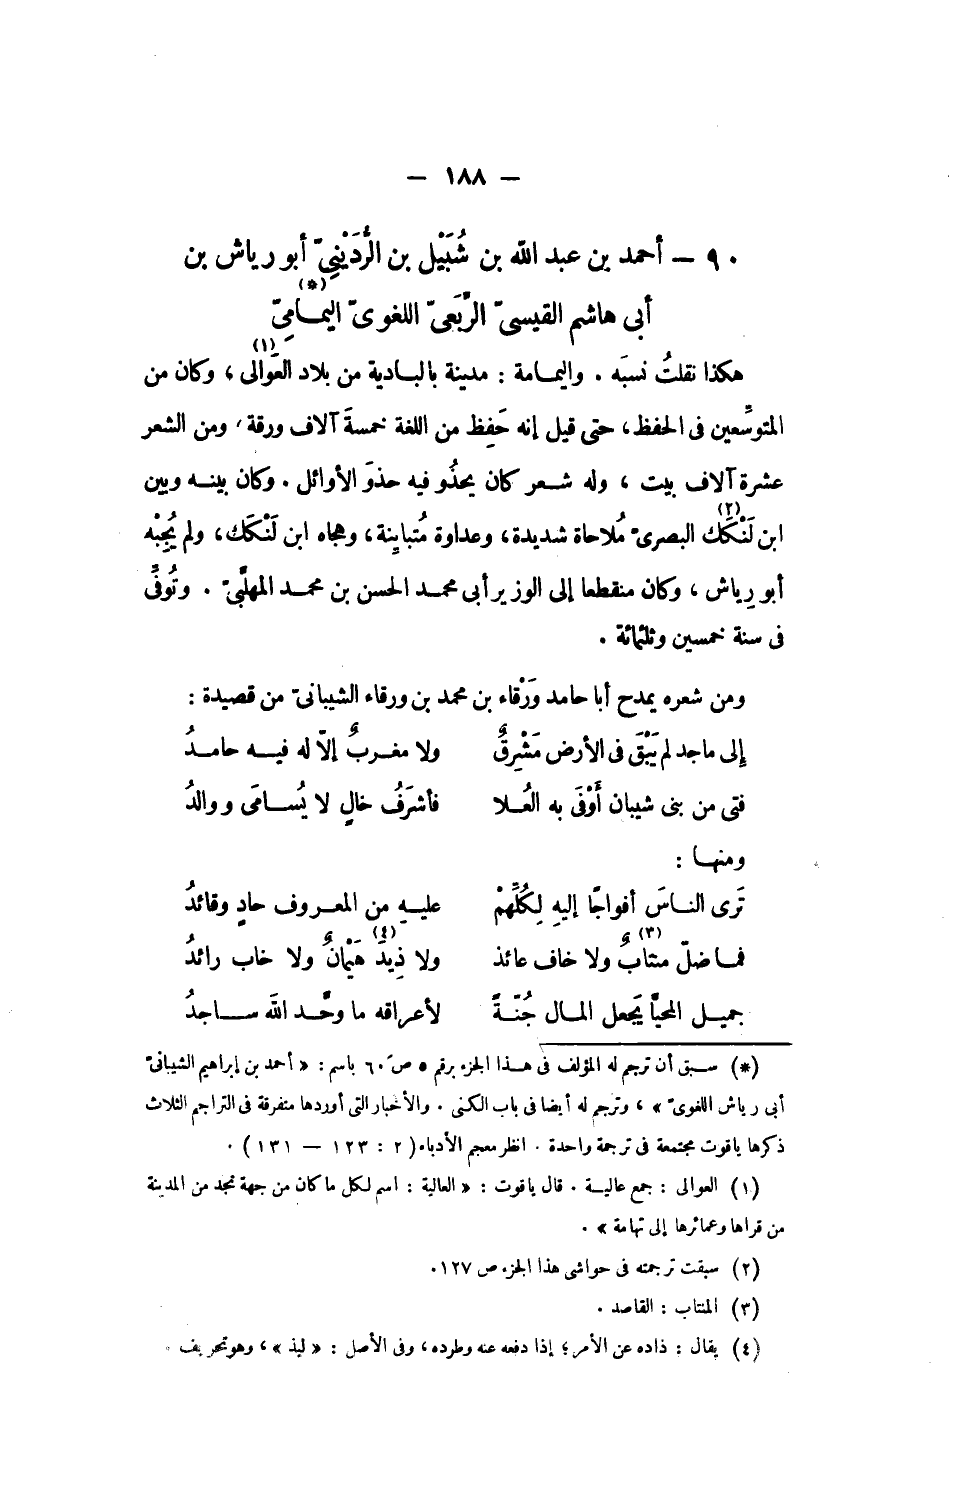 — ١٨٨ —
٩٠ — أحمد بن عبد الله بن شُبَيْل بن الرُّدَيْنِىّ أبو رياش بن
أبى هاشم القيسىّ الرَّبَعىّ اللغوىّ اليمــامِىّ (*)
هكذا نقلتُ نسبَه . واليمــامة : مدينة بالبــادية من بلاد العَوالى (١) ، وكان من
المتوسِّعين فى الحفظ ، حتى قيل إنه حَفِظ من اللغة خمسةَ آلاف ورقة ، ومن الشعر
عشرة آلاف بيت ، وله شــعر كان يحذُو فيه حذوَ الأوائل . وكان بينــه وبين
ابن لَنْكَك (٢) البصرىّ مُلاحاة شديدة ، وعداوة مُتباينِة ، وهجاه ابن لَنْكَك ، ولم يُجِبْه
أبو رِياش ، وكان منقطعا إلى الوزير أبى محمــد الحسن بن محمــد المهلَّبىّ . وتُوفِّى
فى سنة خمسين وثلثمائة .
ومن شعره يمدح أبا حامد وَرْقاء بن محمد بن ورقاء الشيبانىّ من قصيدة :
إلى ماجد لم يَبْقَ فى الأرض مَشْرِقٌ ولا مغــربٌ إلّا له فيــه حامــدُ
فتى من بنى شيبان أَوْفَى به العُــلا فأشرَفُ خالٍ لا يُســامَى ووالدُ
ومنهــا :
تَرى النــاسَ أفواجًا إليهِ لِكُلِّهِمْ عليــهِ من المعــروف حادٍ وقائدُ
فمــا ضلّ منتابٌ (٣) ولا خاف عائذ ولا ذِيدَ (٤) هَيْمانٌ ولا خاب رائدُ
جميــل المحيَّا يَجعل المــال جُنّــةً لأعراقه ما وحَّــد اللهَ ســاجدُ
(*) ســبق أن ترجم له المؤلف فى هــذا الجزء برقم ٥ ص ٦٠ باسم : « أحمد بن إبراهيم الشيبانىّ
أبى رياش اللغوىّ » ، وترجم له أيضا فى باب الكنى . والأخبار التى أوردها متفرقة فى التراجم الثلاث
ذكرها ياقوت مجتمعة فى ترجمة واحدة . انظر معجم الأدباء ( ٢ : ١٢٣ — ١٣١ ) .
(١) العوالى : جمع عاليــة . قال ياقوت : « العالية : اسم لكل ما كان من جهة نجد من المدينة
من قراها وعمائرها إلى تهامة » .
(٢) سبقت ترجمته فى حواشى هذا الجزء ص ١٢٧.
(٣) المنتاب : القاصد .
(٤) يقال : ذاده عن الأمر ؛ إذا دفعه عنه وطرده ، وفى الأصل : « ليذ » ، وهو تحريف .